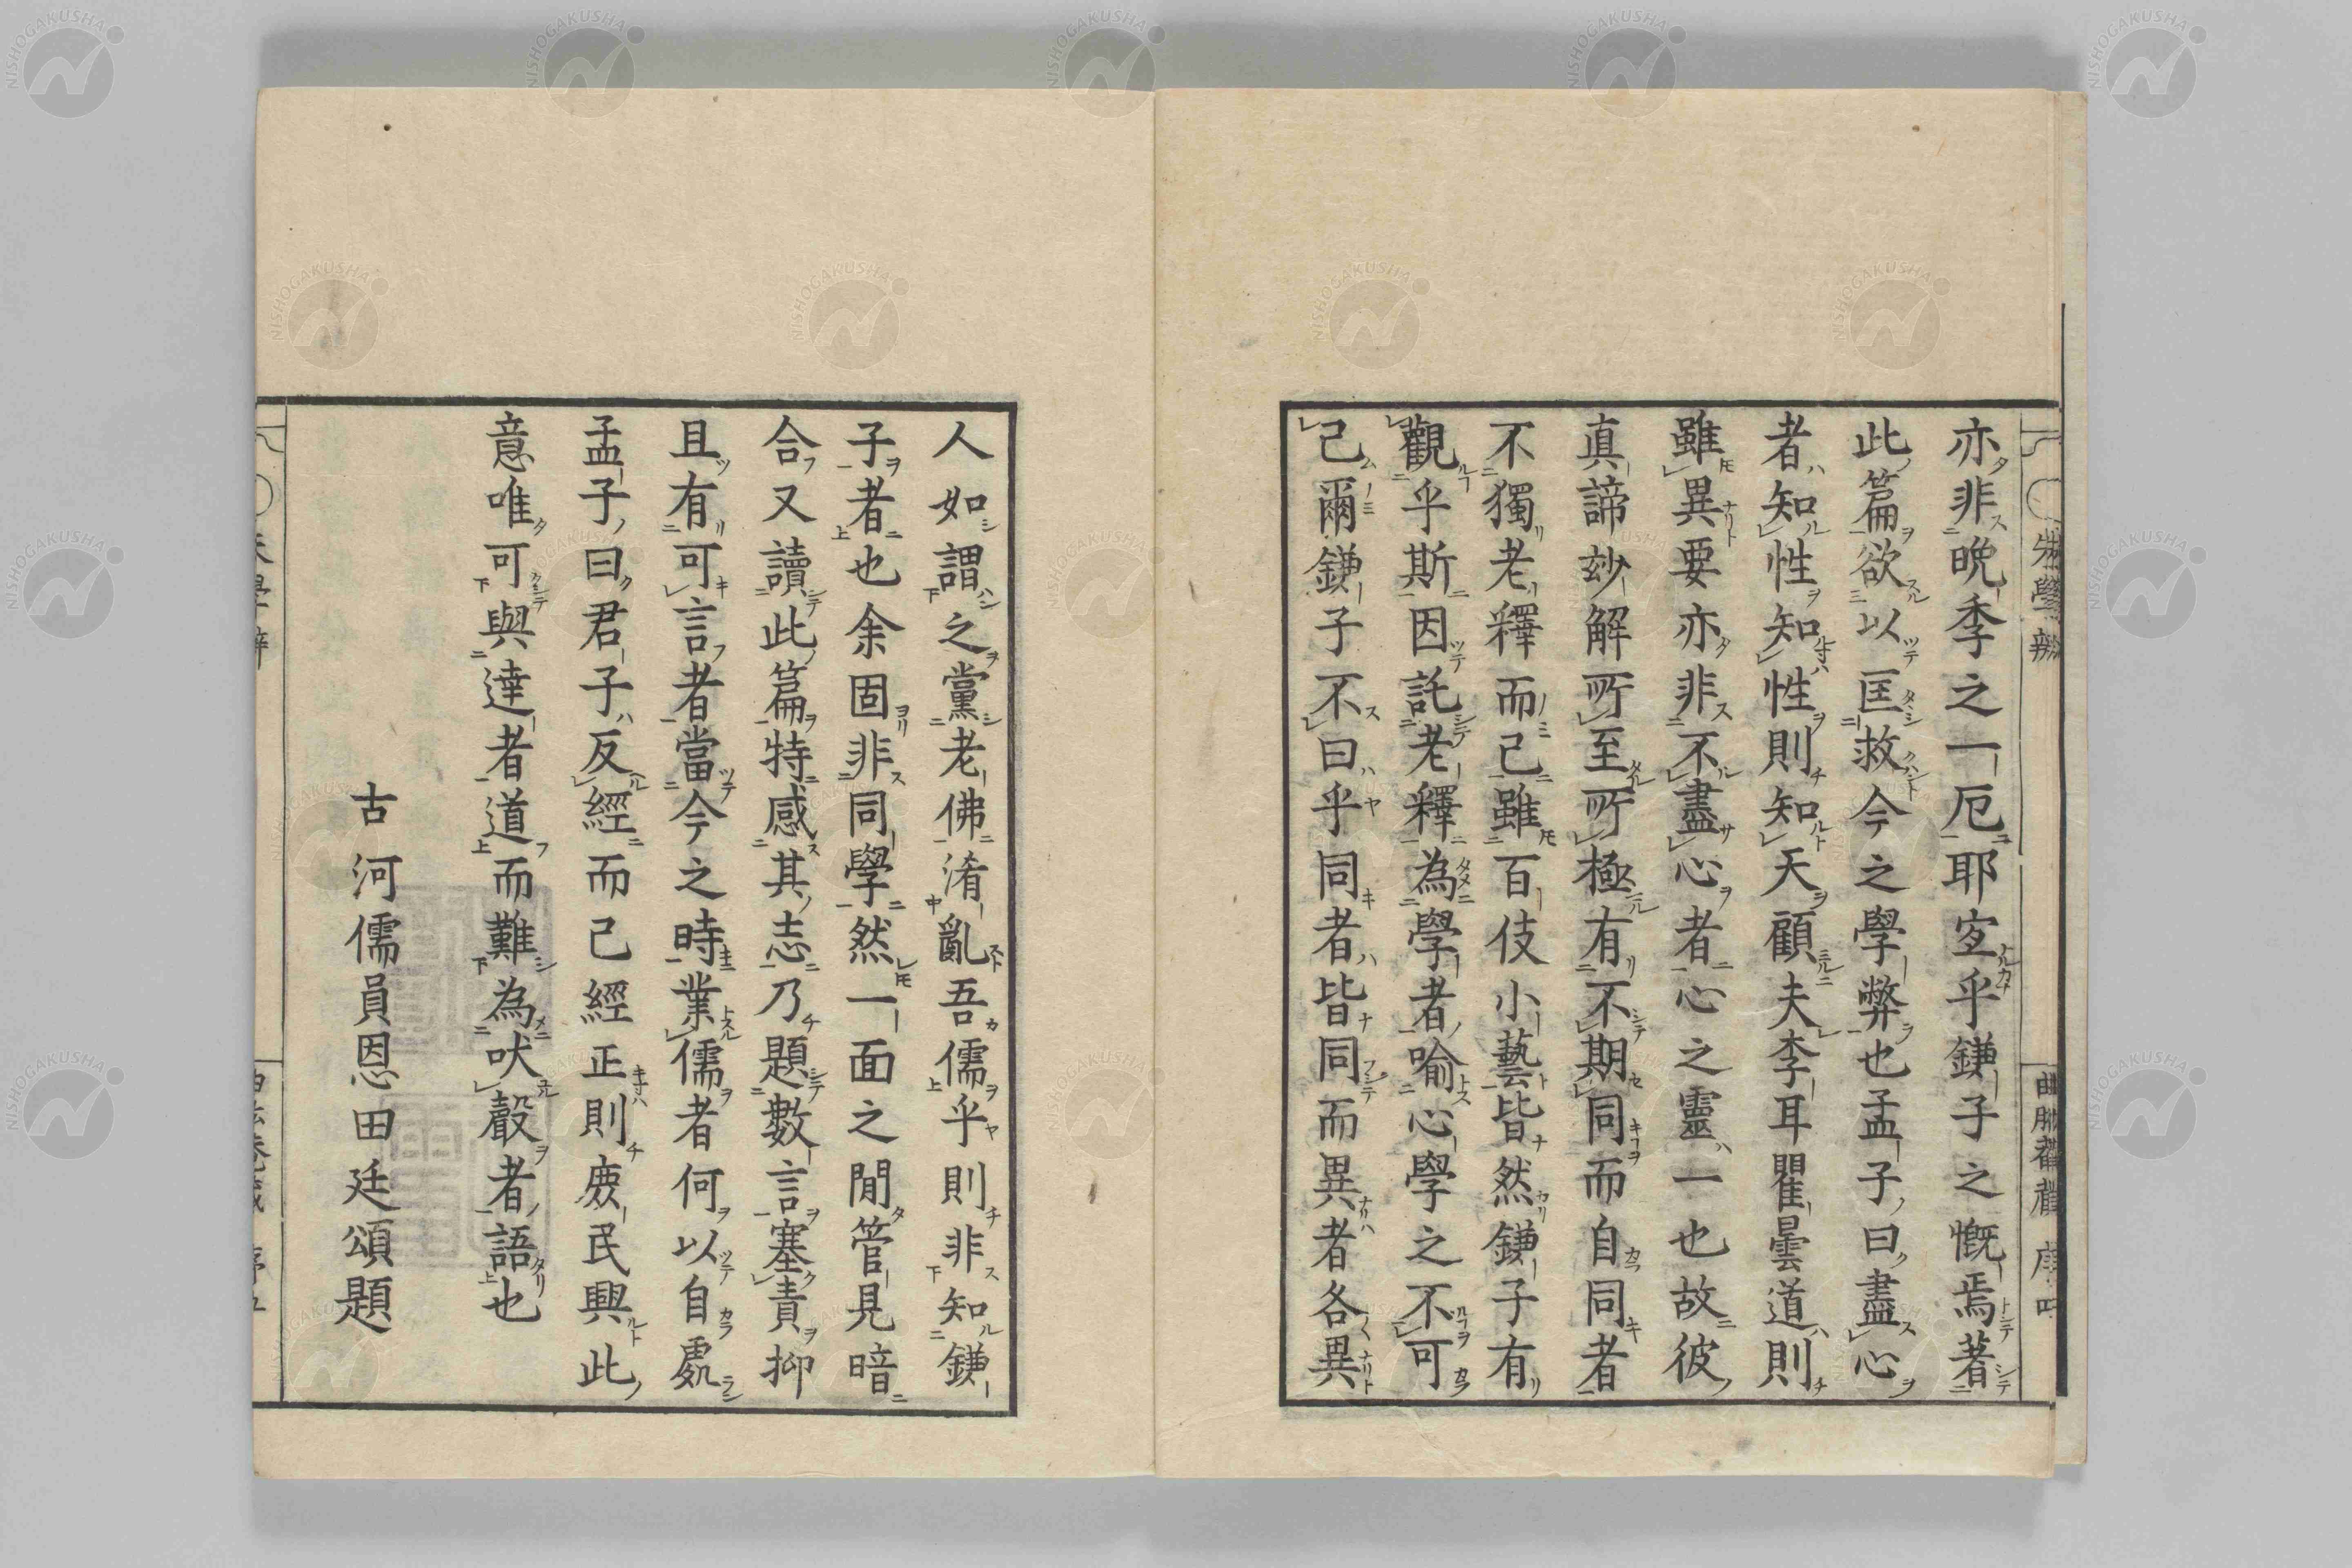 亦非晩季之一厄耶宐乎鎌子之慨焉著
此篇欲以匡救今之學弊也孟子曰盡心
者知性知性則知天顧夫李耳瞿曇道則
雖異要亦非不盡心者心之靈一也故彼
真諦玅解所至所極有不期同而自同者
不獨老釋而已雖百伎小藝皆然鎌子有
觀乎斯因託老釋為學者喻心學之不可
已爾鎌子不曰乎同者皆同而異者各異
人如謂之黨老佛淆亂吾儒乎則非知鎌
子者也余固非同學然一面之間管見暗
合又讀此篇特感其志乃題數言塞責抑
且有可言者當今之時業儒者何以自處
孟子曰君子反經而已經正則庶民興此
意唯可與達者道而難為吠聲者語也
古河儒員恩田廷頌題